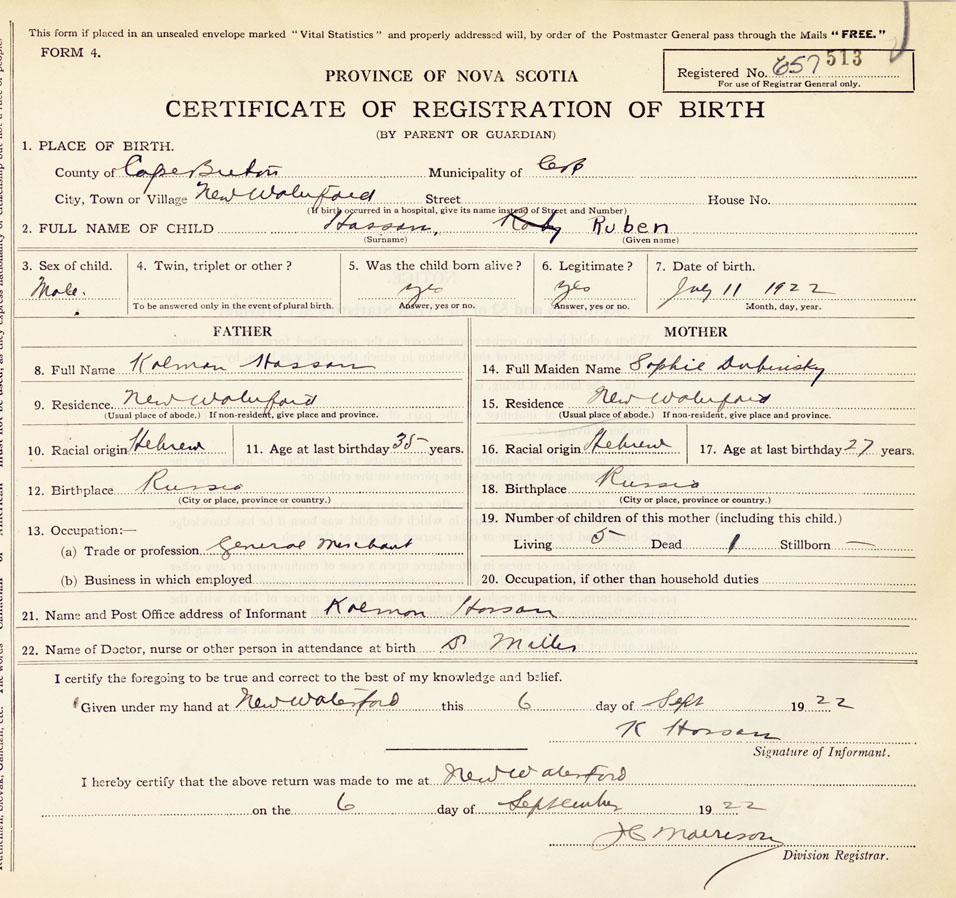 This form if placed in an unsealed envelope marked "Vital Statistics" and properly addressed will, by order of the Postmaster General pass through the Mails "FREE."
FORM 4.
Registered No. 657 513
For use of Registrar General only.
PROVINCE OF NOVA SCOTIA
CERTIFICATE OF REGISTRATION OF BIRTH
(BY PARENT OR GUARDIAN)
1. PLACE OF BIRTH.
County of Cape Breton Municipality of CB
City, Town or Village New Waterford Street House No.
(If birth occurred in a hospital, give its name instead of Street and Number)
2. FULL NAME OF CHILD Hassan, Ruben
(Surname) (Given name)
3. Sex of child. 4. Twin, triplet or other? 5. Was the child born alive? 6. Legitimate? 7. Date of birth.
Male. yes yes July 11 1922
To be answered only in the event of plural birth. Answer, yes or no. Answer, yes or no. Month, day, year.
FATHER MOTHER
8. Full Name Kalman Hassan 14. Full Maiden Name Sophie Dubinsky
9. Residence New Waterford 15. Residence New Waterford
(Usual place of abode.) If non-resident, give place and province. (Usual place of abode.) If non-resident, give place and province.
10. Racial origin Hebrew 11. Age at last birthday 35 years. 16. Racial origin Hebrew 17. Age at last birthday 27 years.
12. Birthplace Russia 18. Birthplace Russia
(City or place, province or country.) (City or place, province or country.)
13. Occupation:— 19. Number of children of this mother (including this child.)
(a) Trade or profession General Merchant Living 5 Dead 1 Stillborn —
(b) Business in which employed 20. Occupation, if other than household duties
21. Name and Post Office address of Informant Kalman Hassan
22. Name of Doctor, nurse or other person in attendance at birth
I certify the foregoing to be true and correct to the best of my knowledge and belief.
Given under my hand at New Waterford this 6 day of Sept 1922
K Hassan
Signature of Informant.
I hereby certify that the above return was made to me at New Waterford
on the 6 day of September 1922
Morrison
Division Registrar.